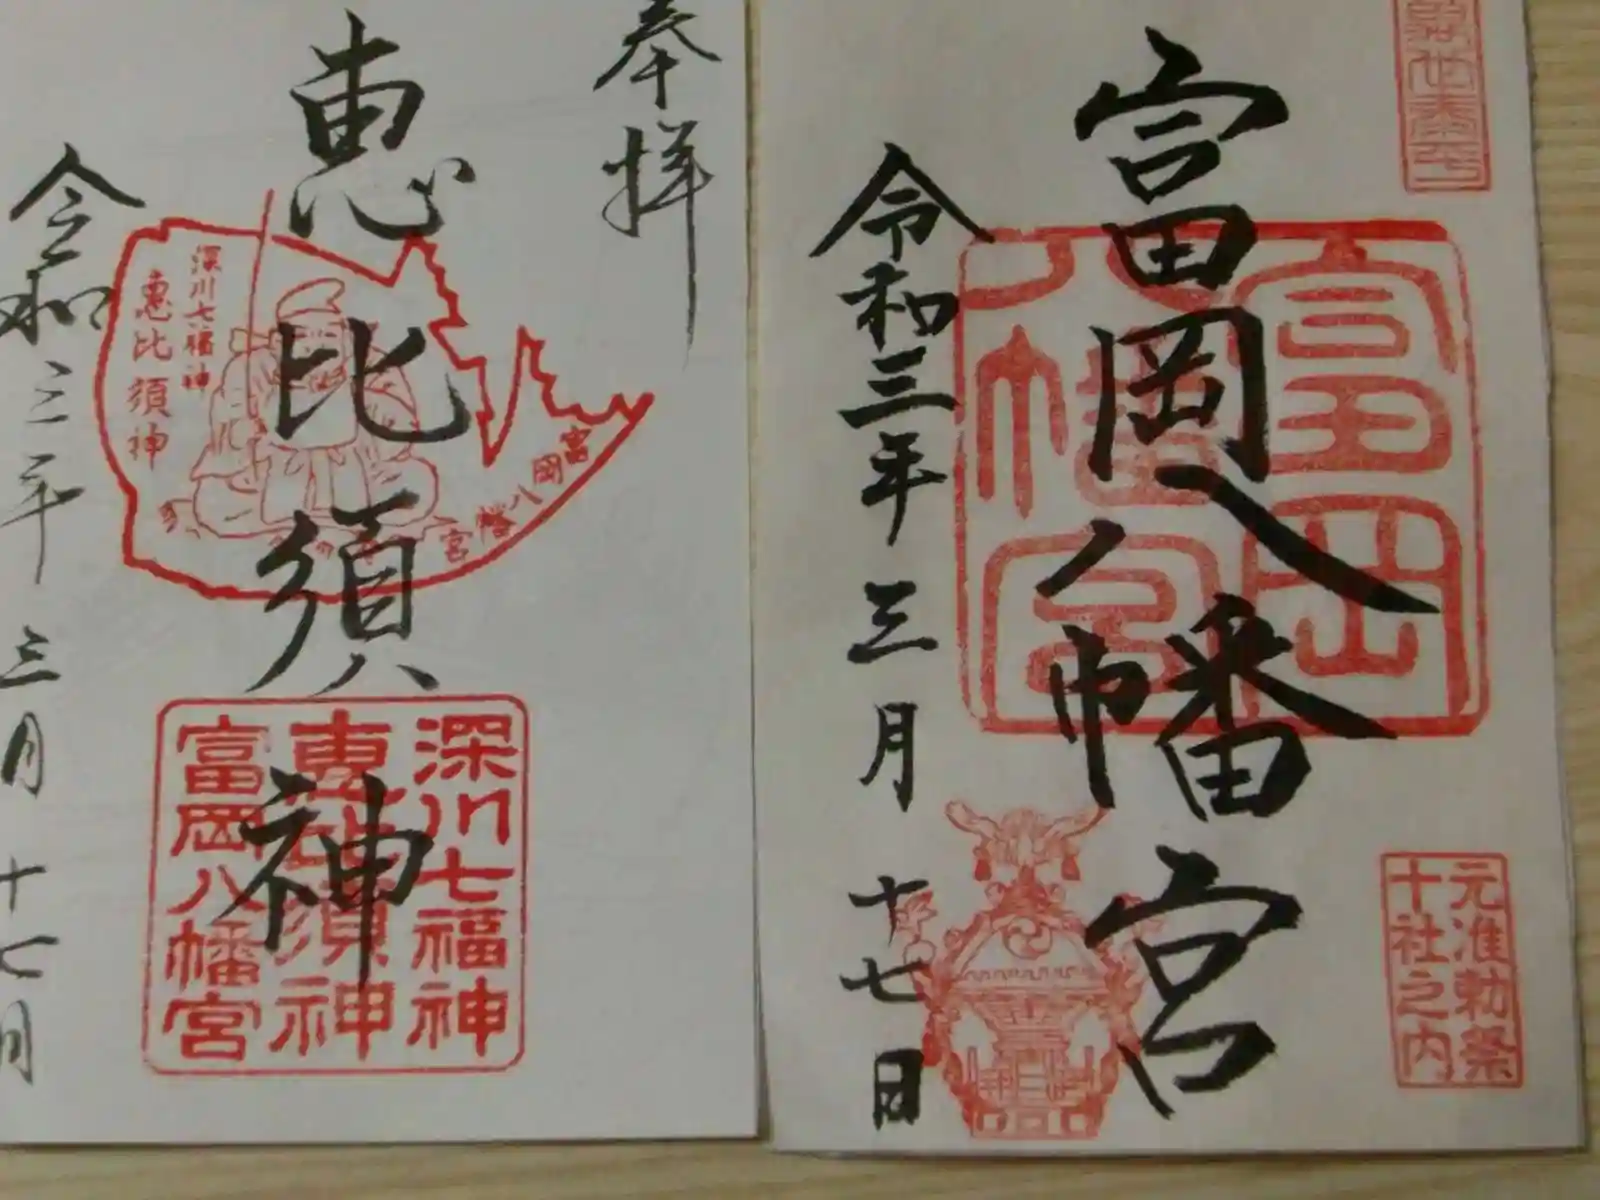 奉拝
恵比須神
令和三年三月十七日
深川七福神
恵比須神
富岡八幡宮
深川七福神
恵比須神
富岡八幡宮
富岡八幡宮
令和三年三月十七日
富岡
八幡宮
元准勅祭
十社之内